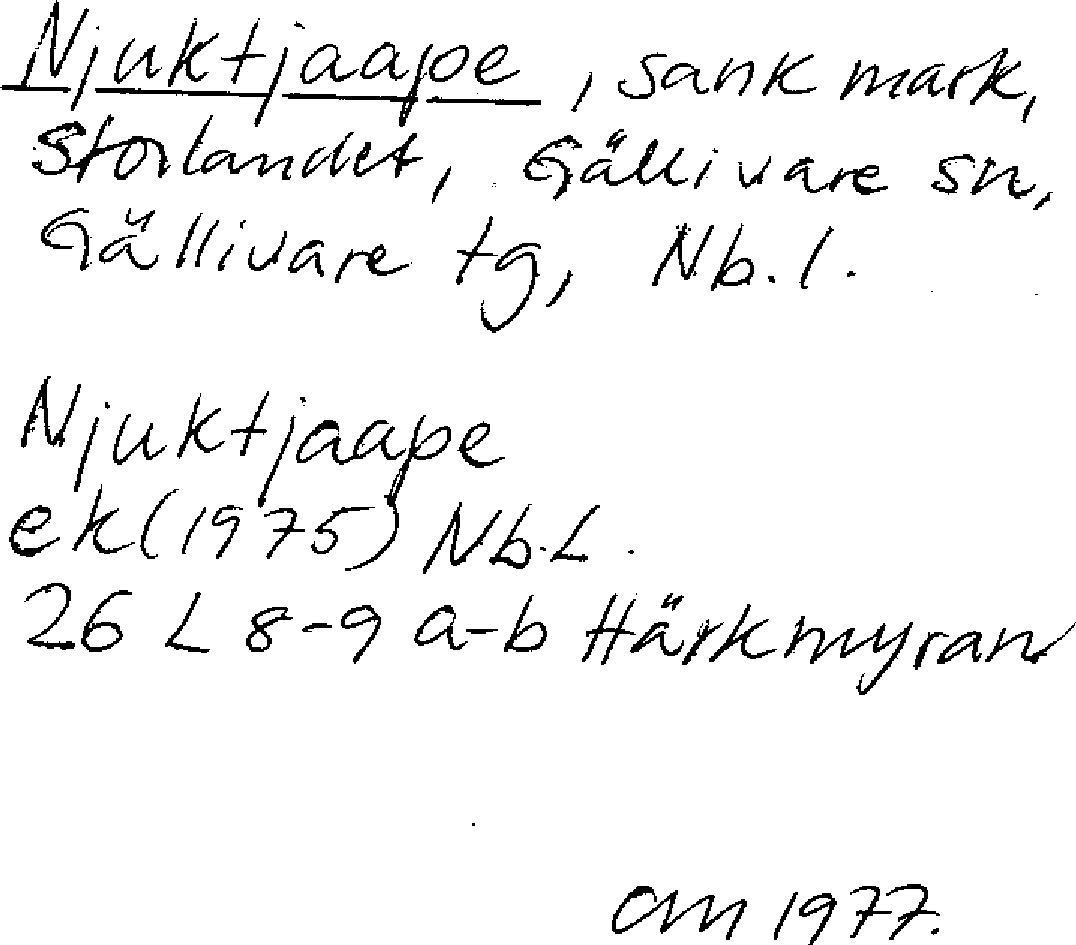 Njuktjaape, sank mark,
Storlandet, Gällivare sn,
Gällivare tg, Nb.l.
Njuktjaape
ek (1975) Nb.L.
26 L 8-9 a-b Härkmyran
am 1977.